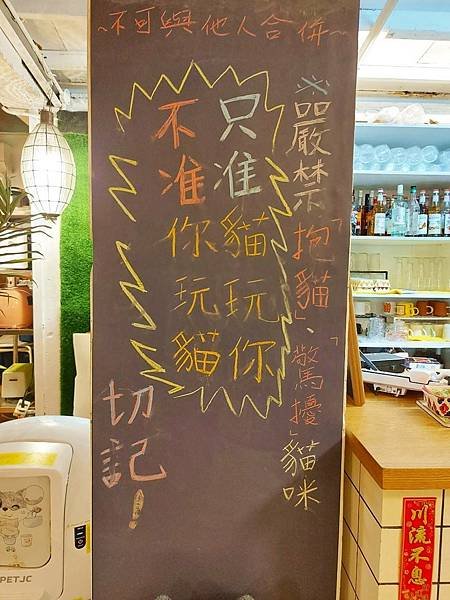 ~不可與他人合併~
※嚴禁「抱貓」、「驚擾」貓咪
只准貓玩你
不准你玩貓
切記！
川流不息
PETJC